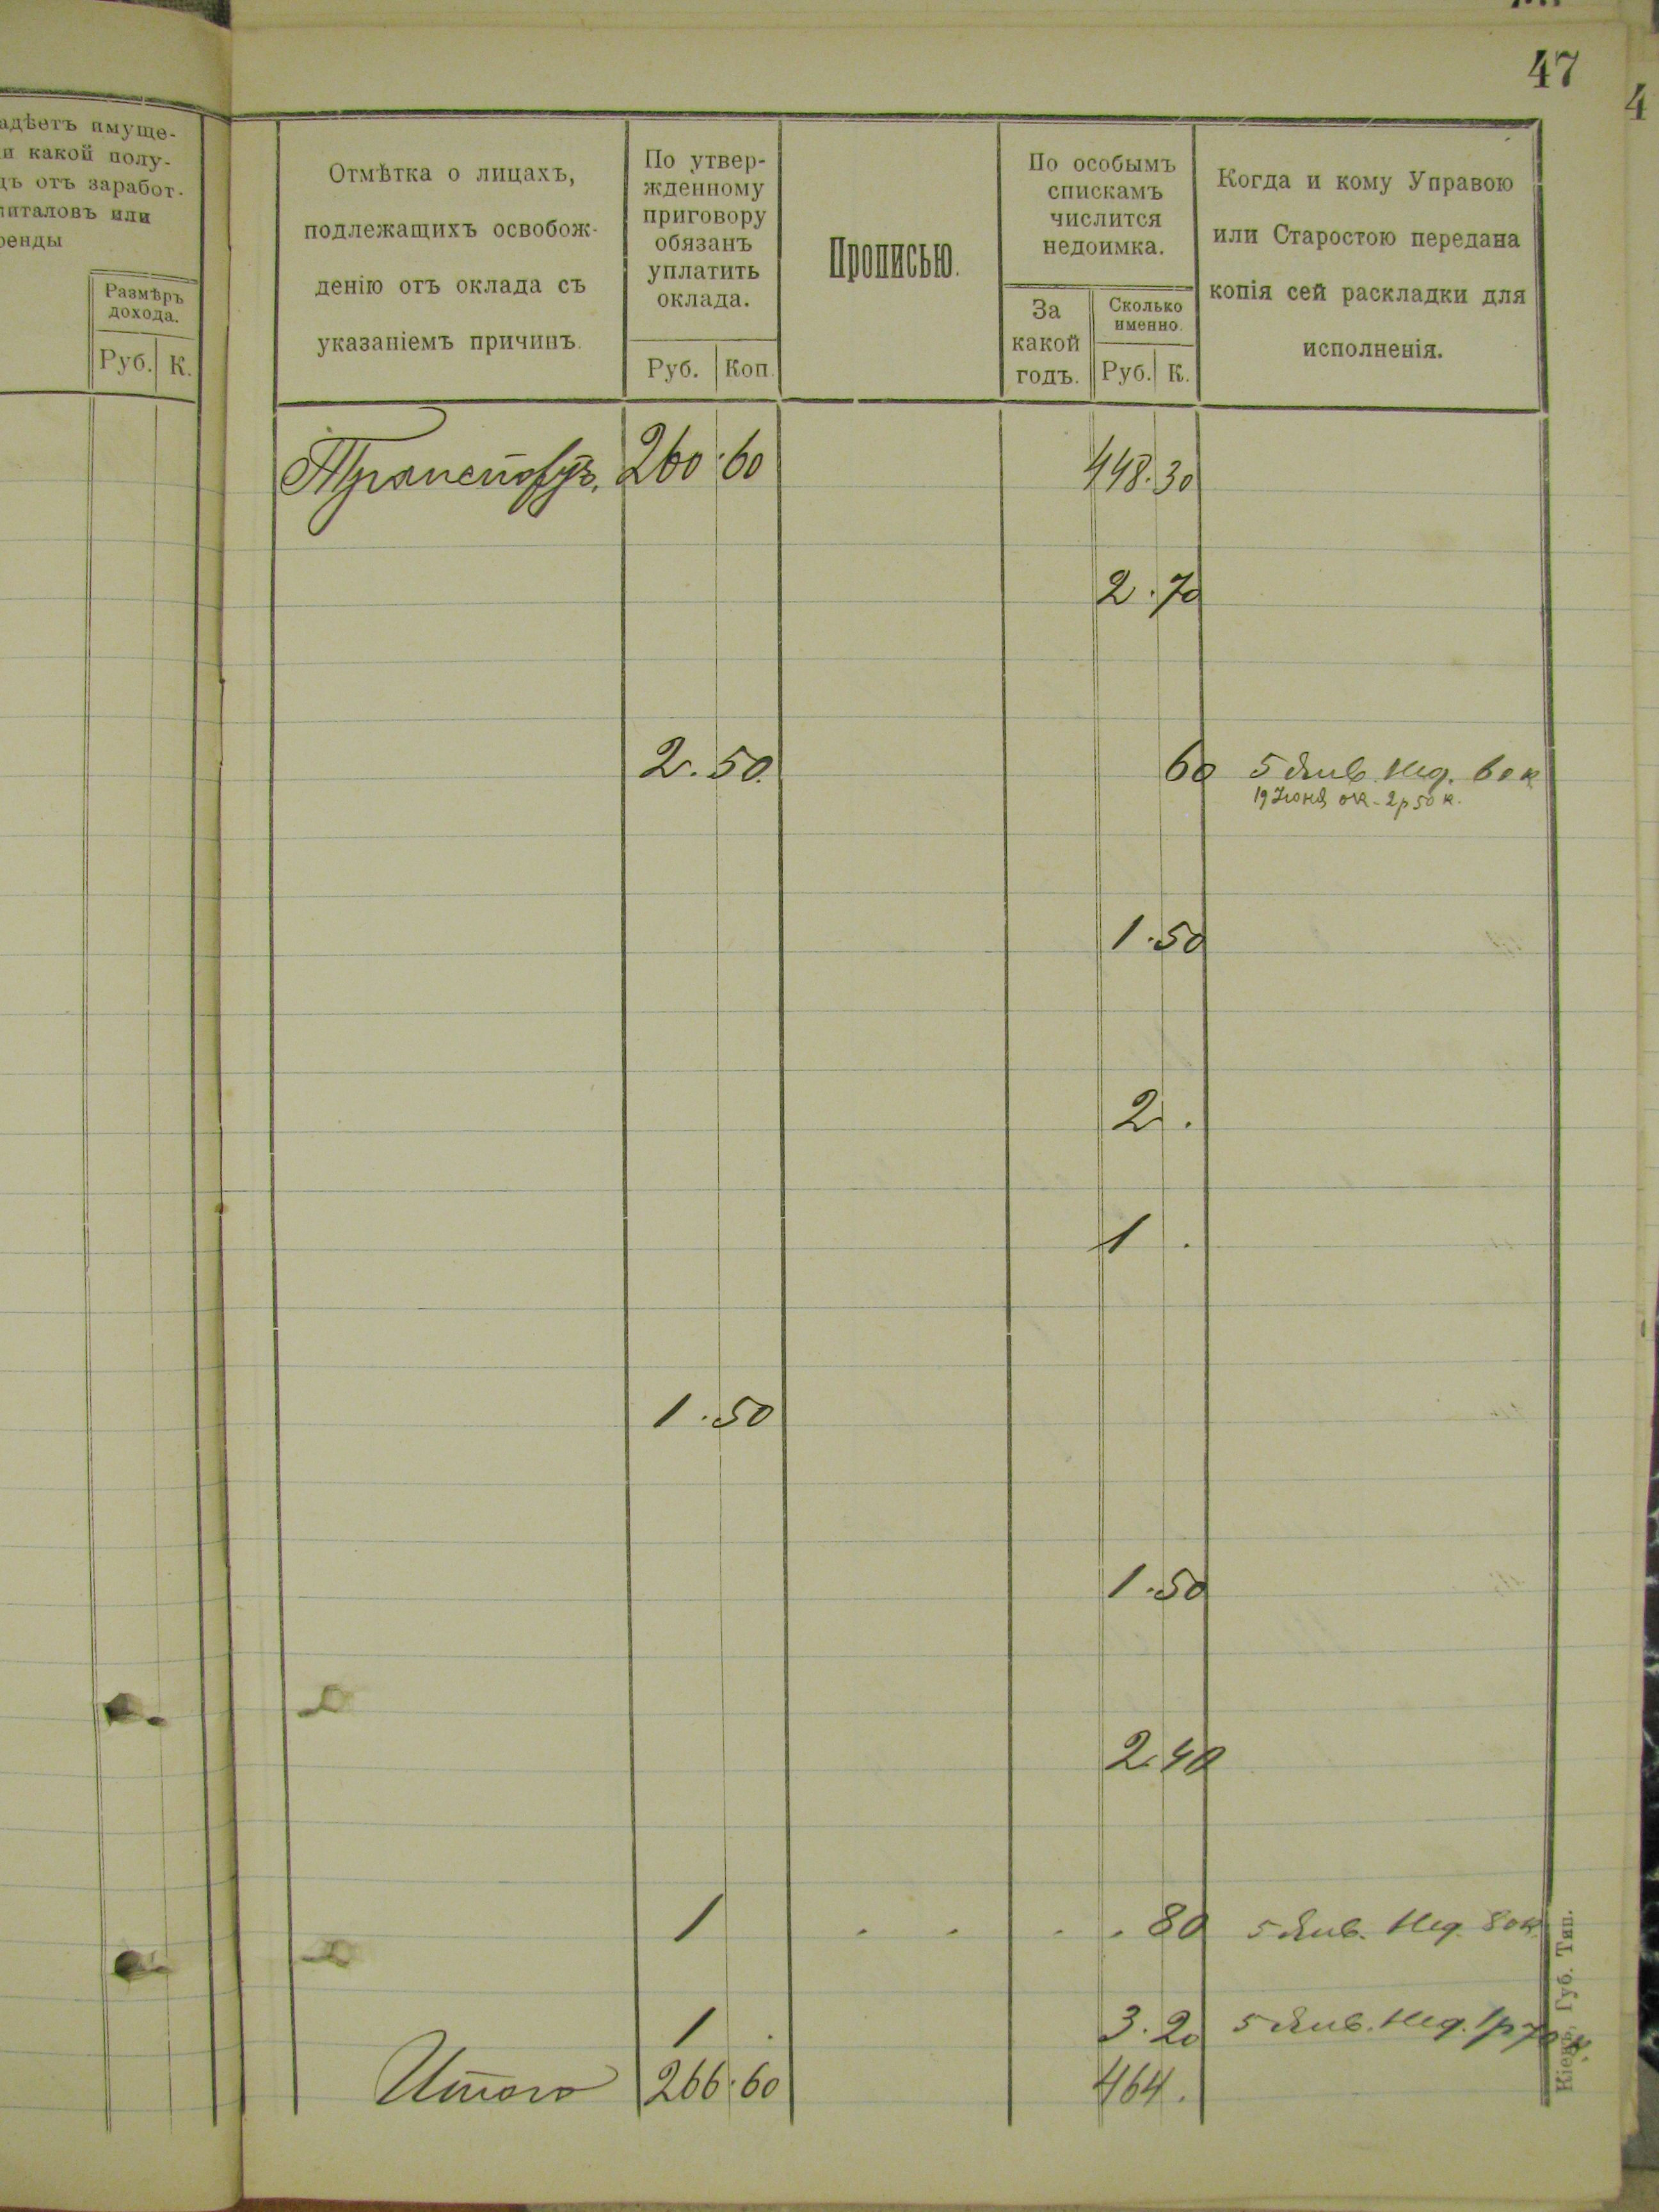 47
4
адѣетъ имуще-
и какой полу-
дъ отъ заработ-
питаловъ или
ренды
Размѣръ
дохода.
Руб. К.
Отмѣтка о лицахъ,
подлежащихъ освобож-
денію отъ оклада съ
указаніемъ причинъ.
По утвер-
жденному
приговору
обязанъ
уплатить
оклада.
Руб. Коп.
Прописью.
По особымъ
спискамъ
числится
недоимка.
За
какой
годъ.
Сколько
именно.
Руб. К.
Когда и кому Управою
или Старостою передана
копія сей раскладки для
исполненія.
Транспортъ. 260.60 448.30
2.70
2.50. 60 5 Янв. Нед. 60 к
19 Іюня ок - 2 р 50 к.
1.50
2.
1.
1.50
1.50
2.40
1 . . . . 80 5 Янв. Нед. 80 к.
1. 3.20 5 Янв. Нед. 1 р 70 к.
Итого 266.60 464.
Кіевъ, Губ. Тип.